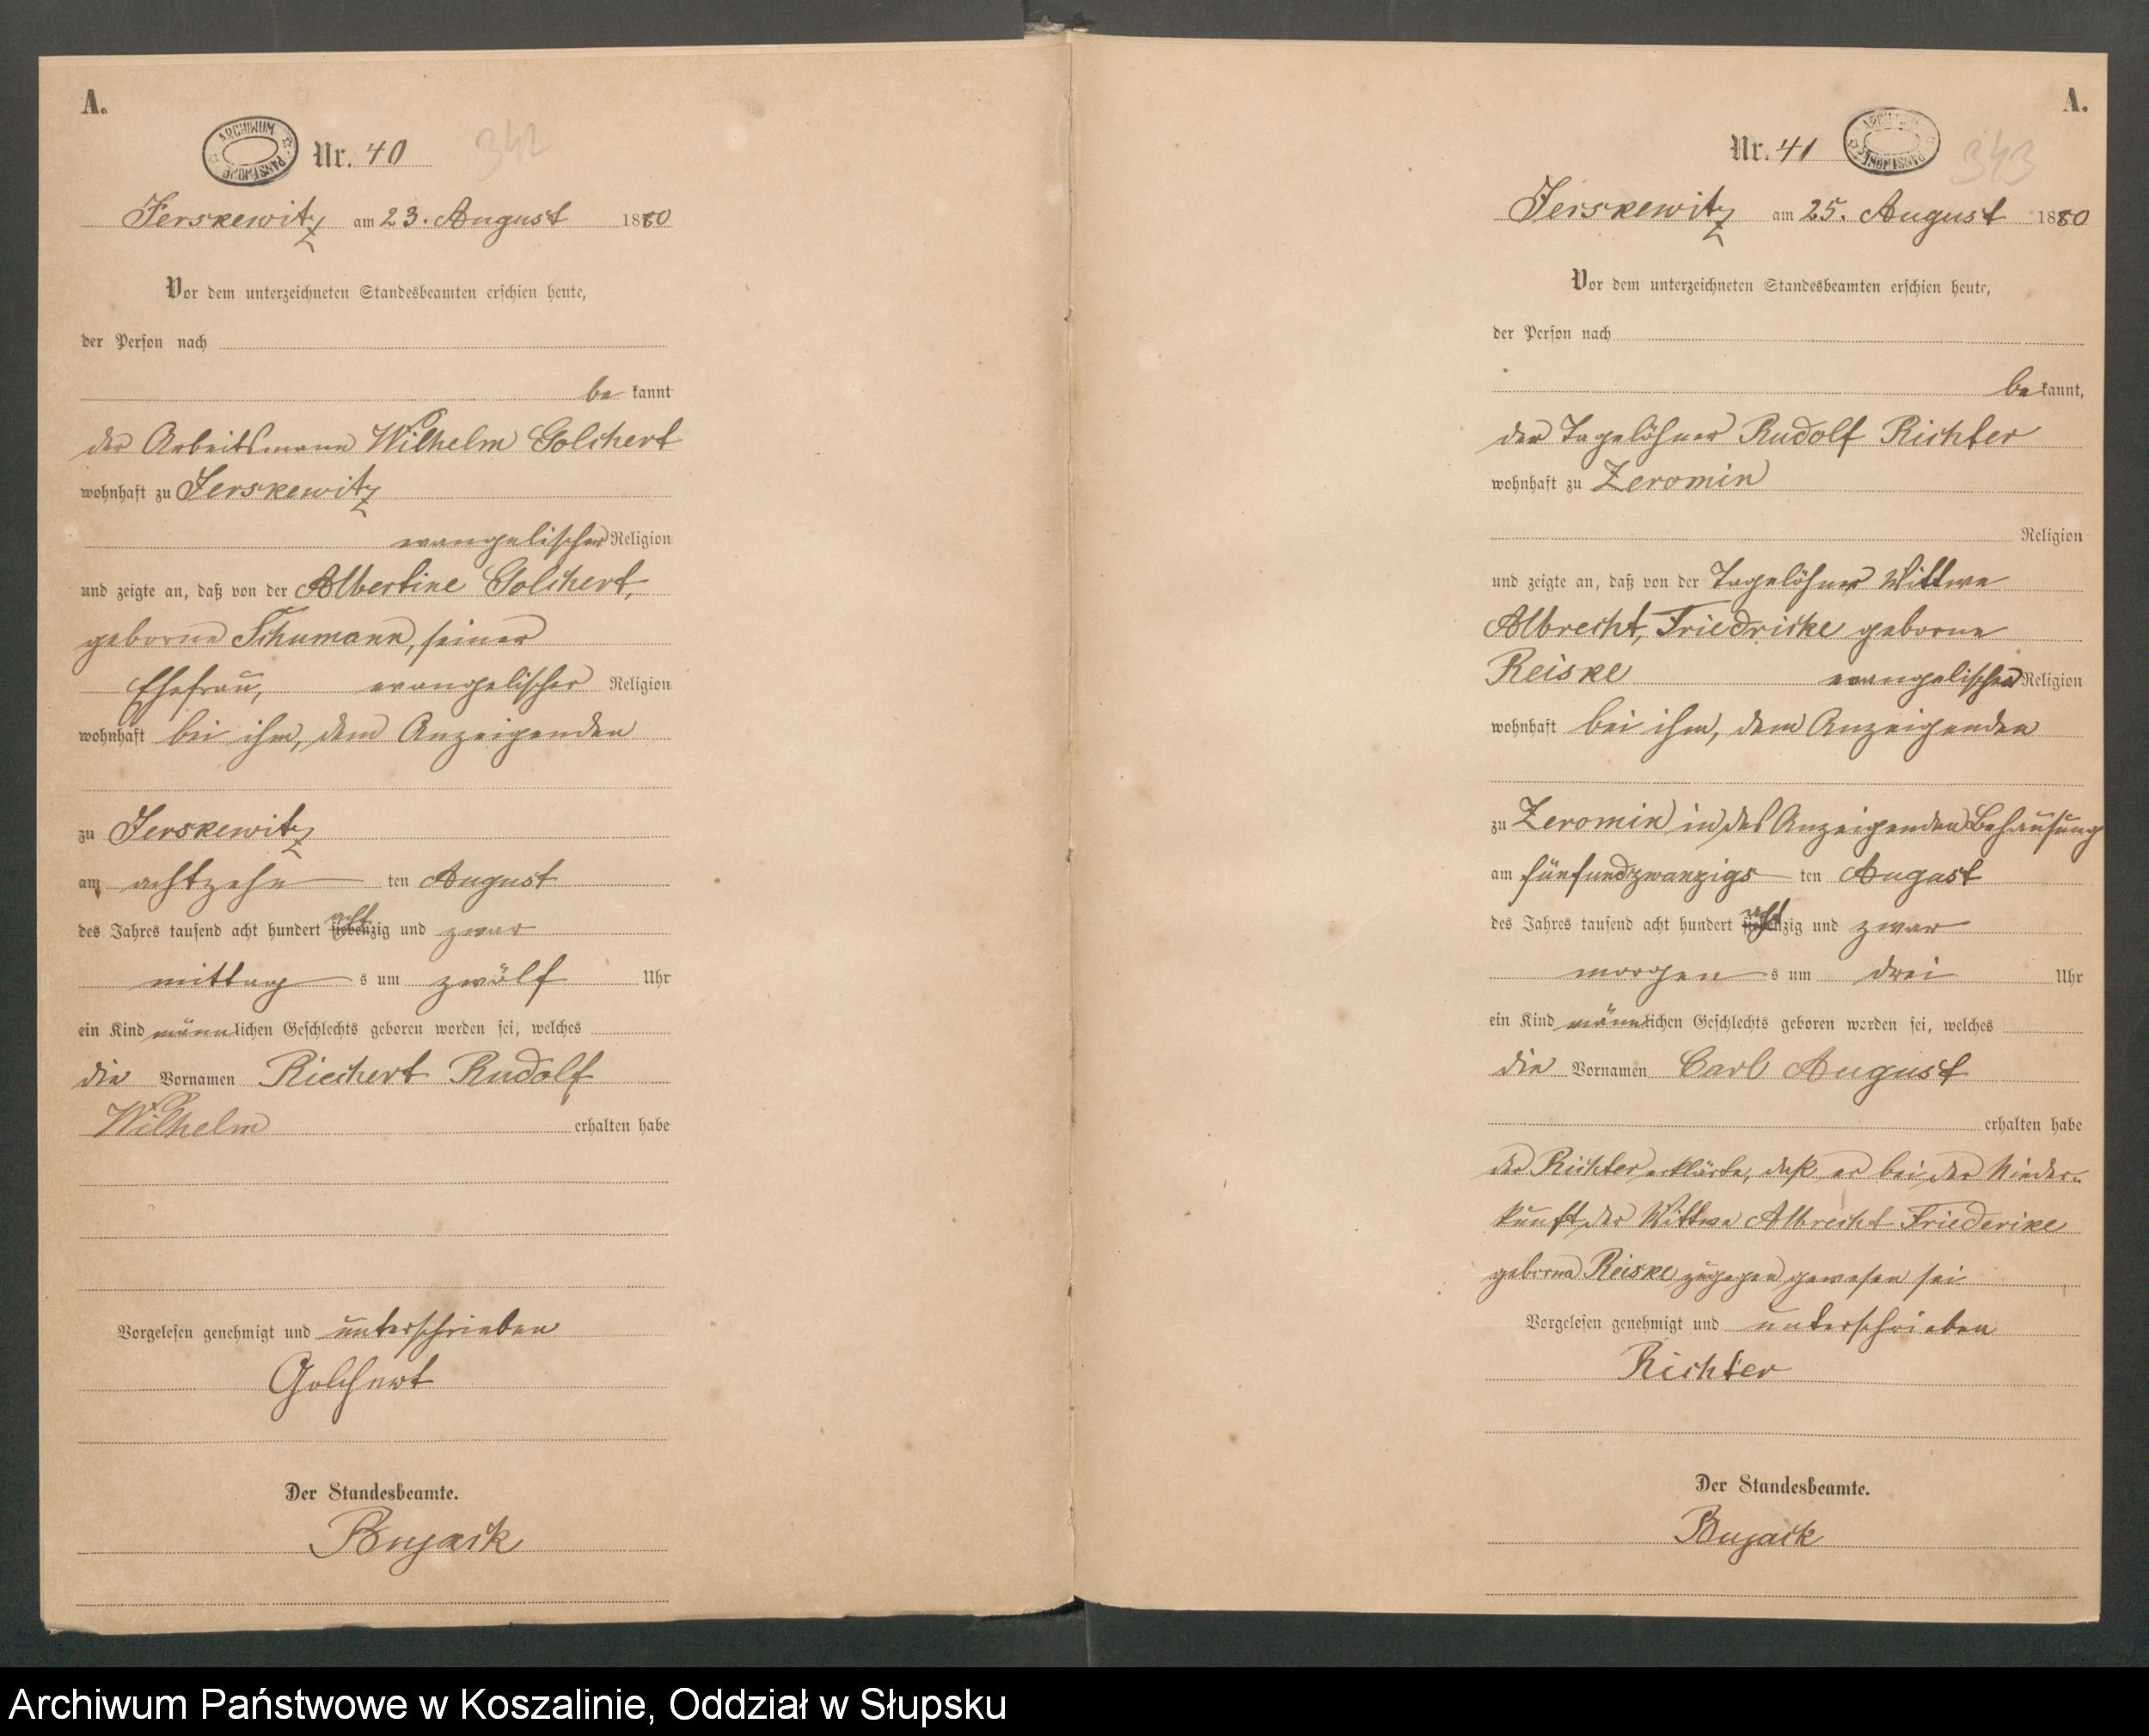 A.
ARCHIWUM PAŃSTWOWE
Nr. 40
342
Jerskewitz am 23. August 1880
Vor dem unterzeichneten Standesbeamten erschien heute,
der Person nach
be kannt
der Arbeitsmann Wilhelm Golchert
wohnhaft zu Jerskewitz
evangelischer Religion
und zeigte an, daß von der Albertine Golchert,
geborne Schumann, seiner
Ehefrau, evangelischer Religion
wohnhaft bei ihm, dem Anzeigenden
zu Jerskewitz
am achtzehn ten August
des Jahres tausend acht hundert siebenzig acht und zwar
mittag s um zwölf Uhr
ein Kind männlichen Geschlechts geboren worden sei, welches
die Vornamen Riechert Rudolf
Wilhelm erhalten habe
Vorgelesen genehmigt und unterschrieben
Golchert
Der Standesbeamte.
Bujack
A.
Nr. 41
ARCHIWUM PAŃSTWOWE
343
Jerskewitz am 25. August 1880
Vor dem unterzeichneten Standesbeamten erschien heute,
der Person nach
be kannt,
der Tagelöhner Rudolf Richter
wohnhaft zu Zeromin
Religion
und zeigte an, daß von der Tagelöhner Wittwe
Albrecht, Friedricke geborne
Reiske evangelischer Religion
wohnhaft bei ihm, dem Anzeigenden
zu Zeromin in des Anzeigenden Behausung
am fünfundzwanzigs ten August
des Jahres tausend acht hundert siebenzig acht und zwar
morgen s um drei Uhr
ein Kind männlichen Geschlechts geboren worden sei, welches
die Vornamen Carl August
erhalten habe
der Richter erklärte, daß er bei der Nieder-
kunft der Wittwe Albrecht Friederike
geborne Reiske zugegen gewesen sei
Vorgelesen genehmigt und unterschrieben
Richter
Der Standesbeamte.
Bujack
Archiwum Państwowe w Koszalinie, Oddział w Słupsku